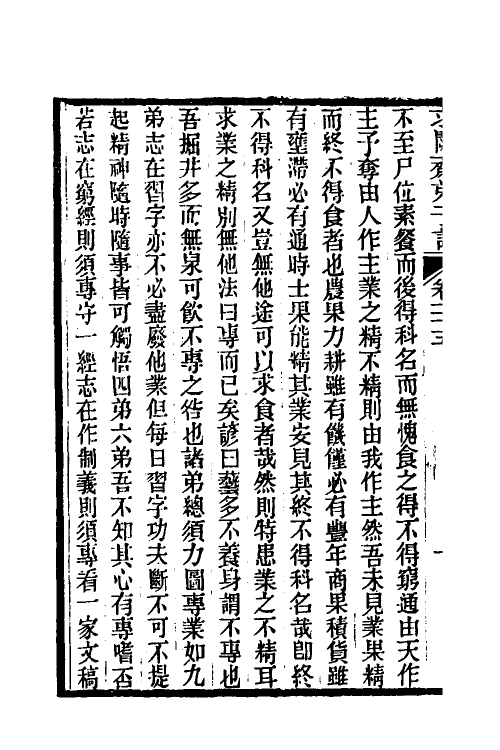 求闕齋弟子記 卷二十五 一
不至尸位素餐而後得科名而無愧食之得不得窮通由天作
主予奪由人作主業之精不精則由我作主然吾未見業果精
而終不得食者也農果力耕雖有饑僅必有豐年商果積貨雖
有壅滯必有通時士果能精其業安見其終不得科名哉卽終
不得科名又豈無他途可以求食者哉然則特患業之不精耳
求業之精別無他法曰專而已矣諺曰藝多不養身謂不專也
吾掘井多而無泉可飲不專之咎也諸弟總須力圖專業如九
弟志在習字亦不必盡廢他業但每日習字功夫斷不可不提
起精神隨時隨事皆可觸悟四弟六弟吾不知其心有專嗜否
若志在窮經則須專守一經志在作制義則須專看一家文稿